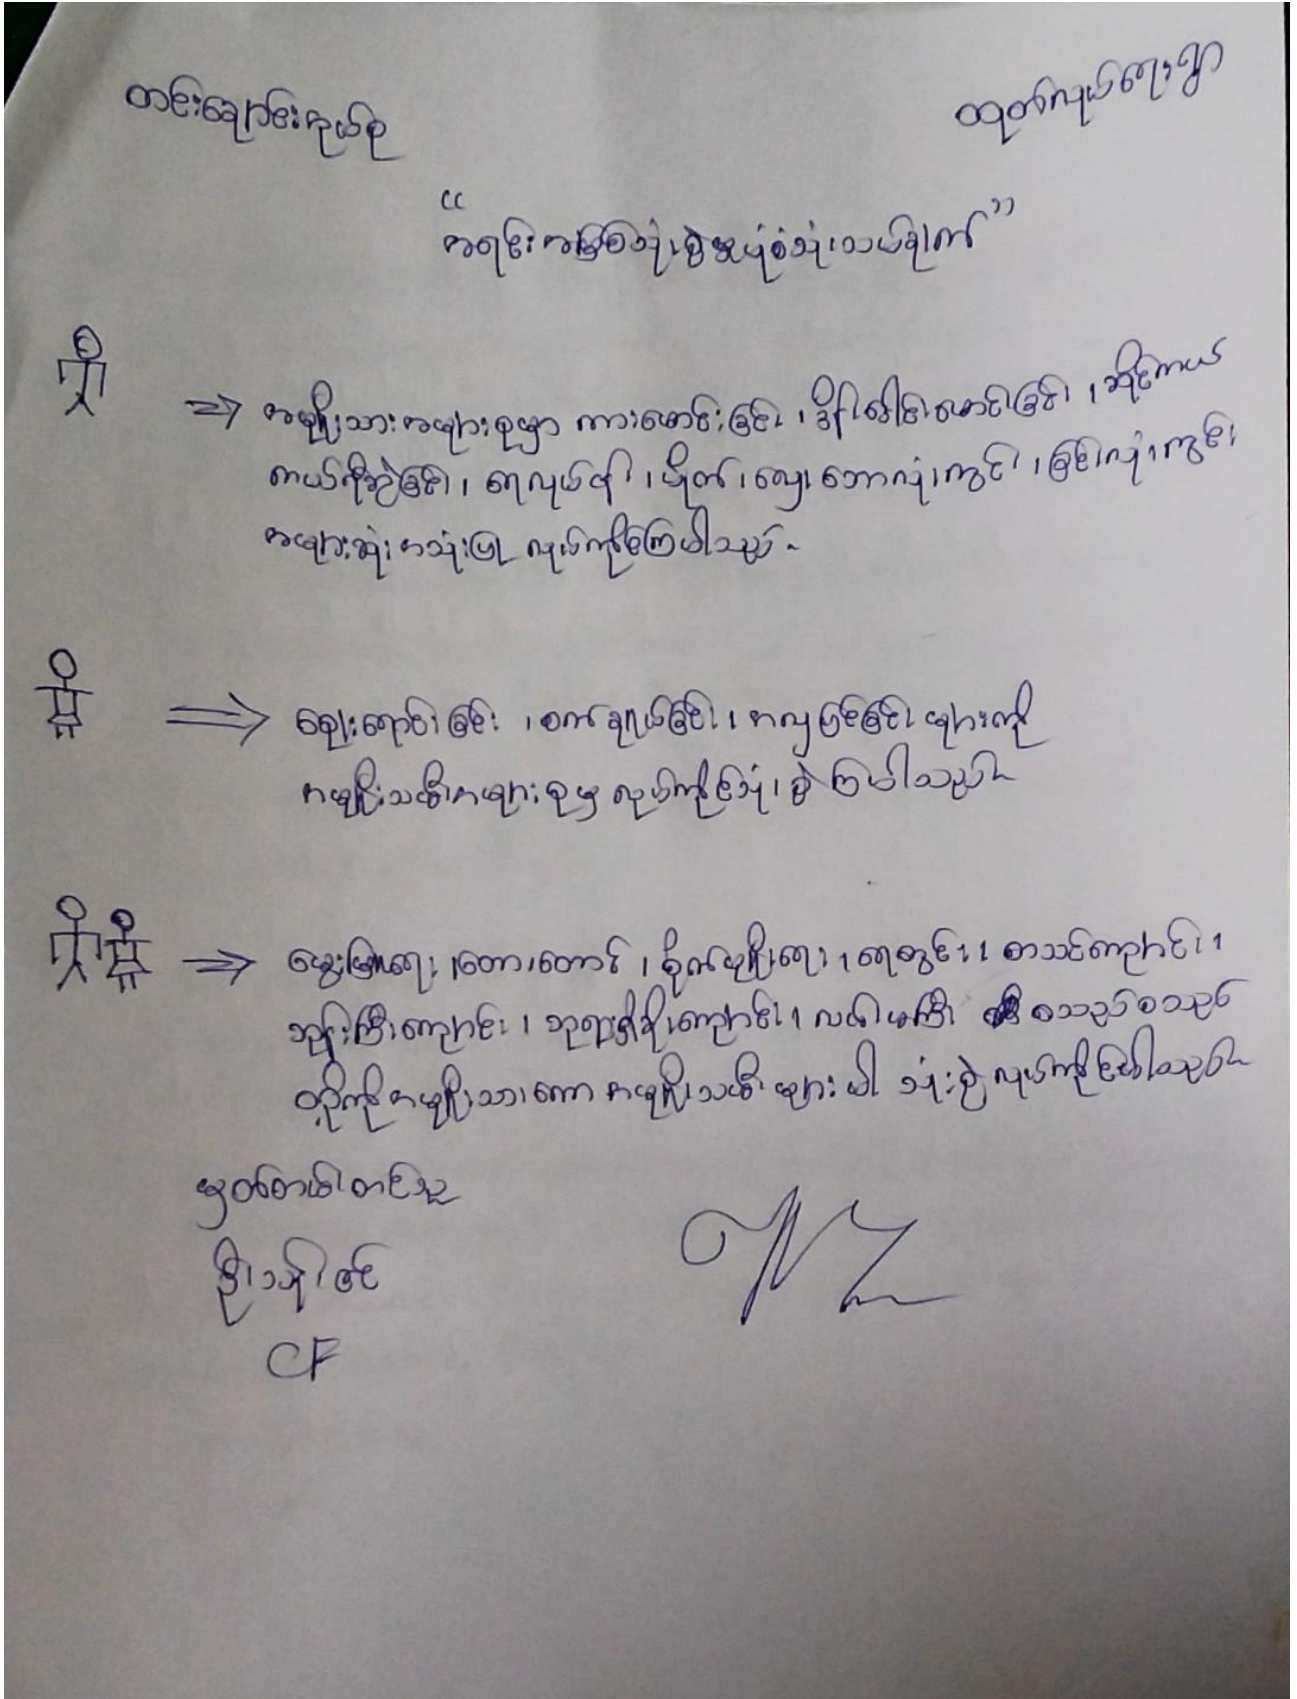 တင်းချောင်းကုယ်စု ထုတ်လုယ်ရေးရွာ
“အရင်းအမြစ်သုံးစွဲမှုပုံစံသုံးသပ်ချက်”
⇒ အမျိုးသားအများစုမှာ ကားမောင်းခြင်း၊ ဒိုင်းမောင်းခြင်း၊ ဆိုင်ကယ်
ကယ်ရီဆွဲခြင်း၊ ရေလုပ်ငန်း၊ ပိုက်၊ လှေ၊ ဘောလုံးကွင်း၊ ခြင်းလုံးကွင်း
အများဆုံး အသုံးပြု လုပ်ကိုင်ကြပါသည်။
⇒ ဈေးရောင်းခြင်း၊ စက်ချုပ်ခြင်း၊ အလှပြင်ခြင်းများကို
အမျိုးသမီးအများစုမှ လုပ်ကိုင်သုံးစွဲကြပါသည်။
⇒ မွေးမြူရေး၊ တော၊ တောင်၊ စိုက်ပျိုးရေး၊ ရေတွင်း၊ စာသင်ကျောင်း၊
ဘုန်းကြီးကျောင်း၊ ဘုရားရှိခိုးကျောင်း၊ လမ်းမကြီး စသည်စသည်
တို့ကိုအမျိုးသားကော အမျိုးသမီးများပါ သုံးစွဲလုပ်ကိုင်ပါသည်။
မှတ်တမ်းတင်သူ
ဦးသန်းဇင်
CF